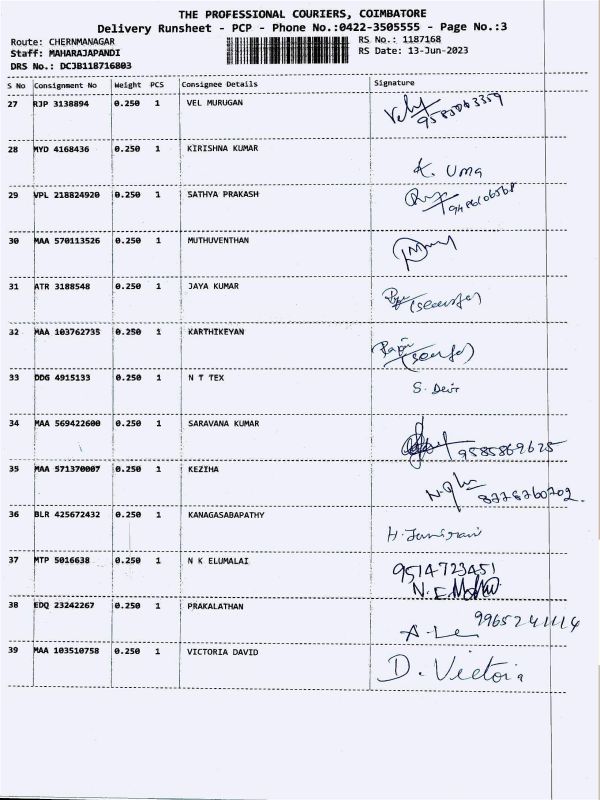 THE PROFESSIONAL COURIERS, COIMBATORE
Delivery Runsheet - PCP - Phone No.:0422-3505555 - Page No.:3
Route: CHERNMANAGAR
RS No.: 1187168
Staff: MAHARAJAPANDI
RS Date: 13-Jun-2023
DRS No.: DCJB118716803
S No Consignment No Weight PCS Consignee Details Signature
27 RJP 3138894 0.250 1 VEL MURUGAN
28 MYD 4168436 0.250 1 KIRISHNA KUMAR
K. Uma
29 VPL 218824920 0.250 1 SATHYA PRAKASH
30 MAA 570113526 0.250 1 MUTHUVENTHAN
31 ATR 3188548 0.250 1 JAYA KUMAR
32 MAA 103762735 0.250 1 KARTHIKEYAN
33 DDG 4915133 0.250 1 N T TEX
S. Devi
34 MAA 569422600 0.250 1 SARAVANA KUMAR
9585869625
35 MAA 571370007 0.250 1 KEZIHA
8778760702.
36 BLR 425672432 0.250 1 KANAGASABAPATHY
37 MTP 5016638 0.250 1 N K ELUMALAI
9514723451
38 EDQ 23242267 0.250 1 PRAKALATHAN
9965241114
39 MAA 103510758 0.250 1 VICTORIA DAVID
D. Victoria